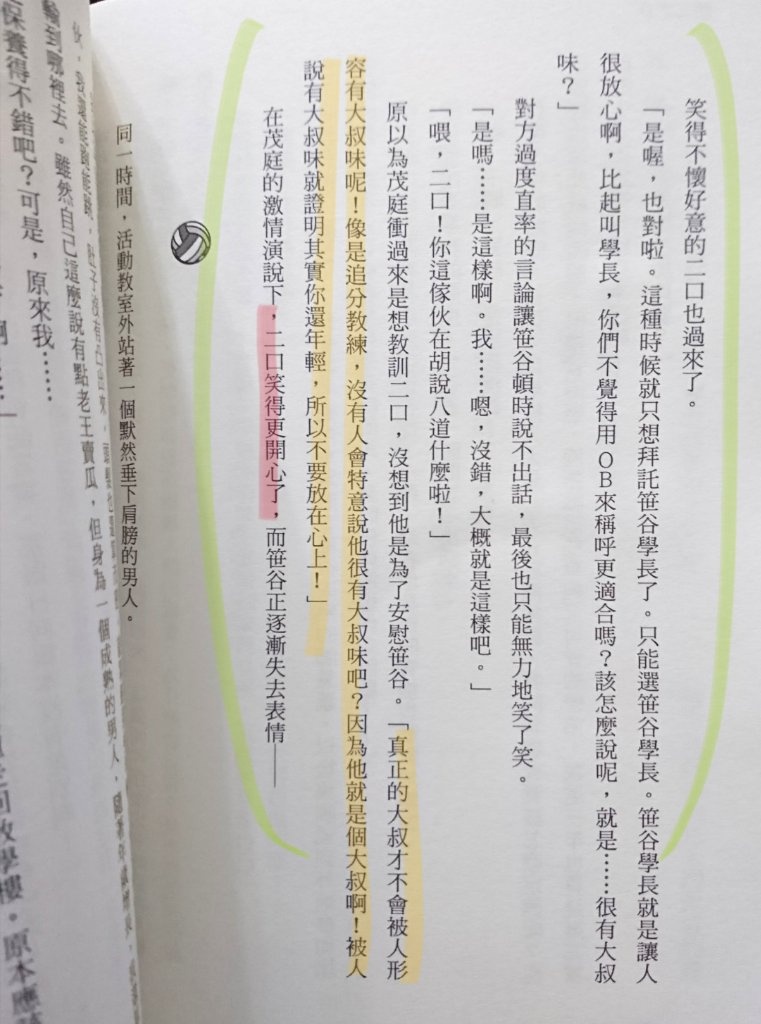 笑得不懷好意的二口也過來了。
「是喔，也對啦。這種時候就只想拜託笹谷學長了。只能選笹谷學長。笹谷學長就是讓人
很放心啊，比起叫學長，你們不覺得用OB來稱呼更適合嗎？該怎麼說呢，就是……很有大叔
味？」
對方過度直率的言論讓笹谷頓時說不出話，最後也只能無力地笑了笑。
「是嗎……是這樣啊。我……嗯，沒錯，大概就是這樣吧。」
「喂，二口！你這傢伙在胡說八道什麼啦！」
原以為茂庭衝過來是想教訓二口，沒想到他是為了安慰笹谷。「真正的大叔才不會被人形
容有大叔味呢！像是追分教練，沒有人會特意說他很有大叔味吧？因為他就是個大叔啊！被人
說有大叔味就證明其實你還年輕，所以不要放在心上！」
在茂庭的激情演說下，二口笑得更開心了，而笹谷正逐漸失去表情——
同一時間，活動教室外站著一個默然垂下肩膀的男人。
輪到哪裡去。雖然自己這麼說有點老王賣瓜，但身為一個成熟的男人，
保養得不錯吧？可是，原來我……